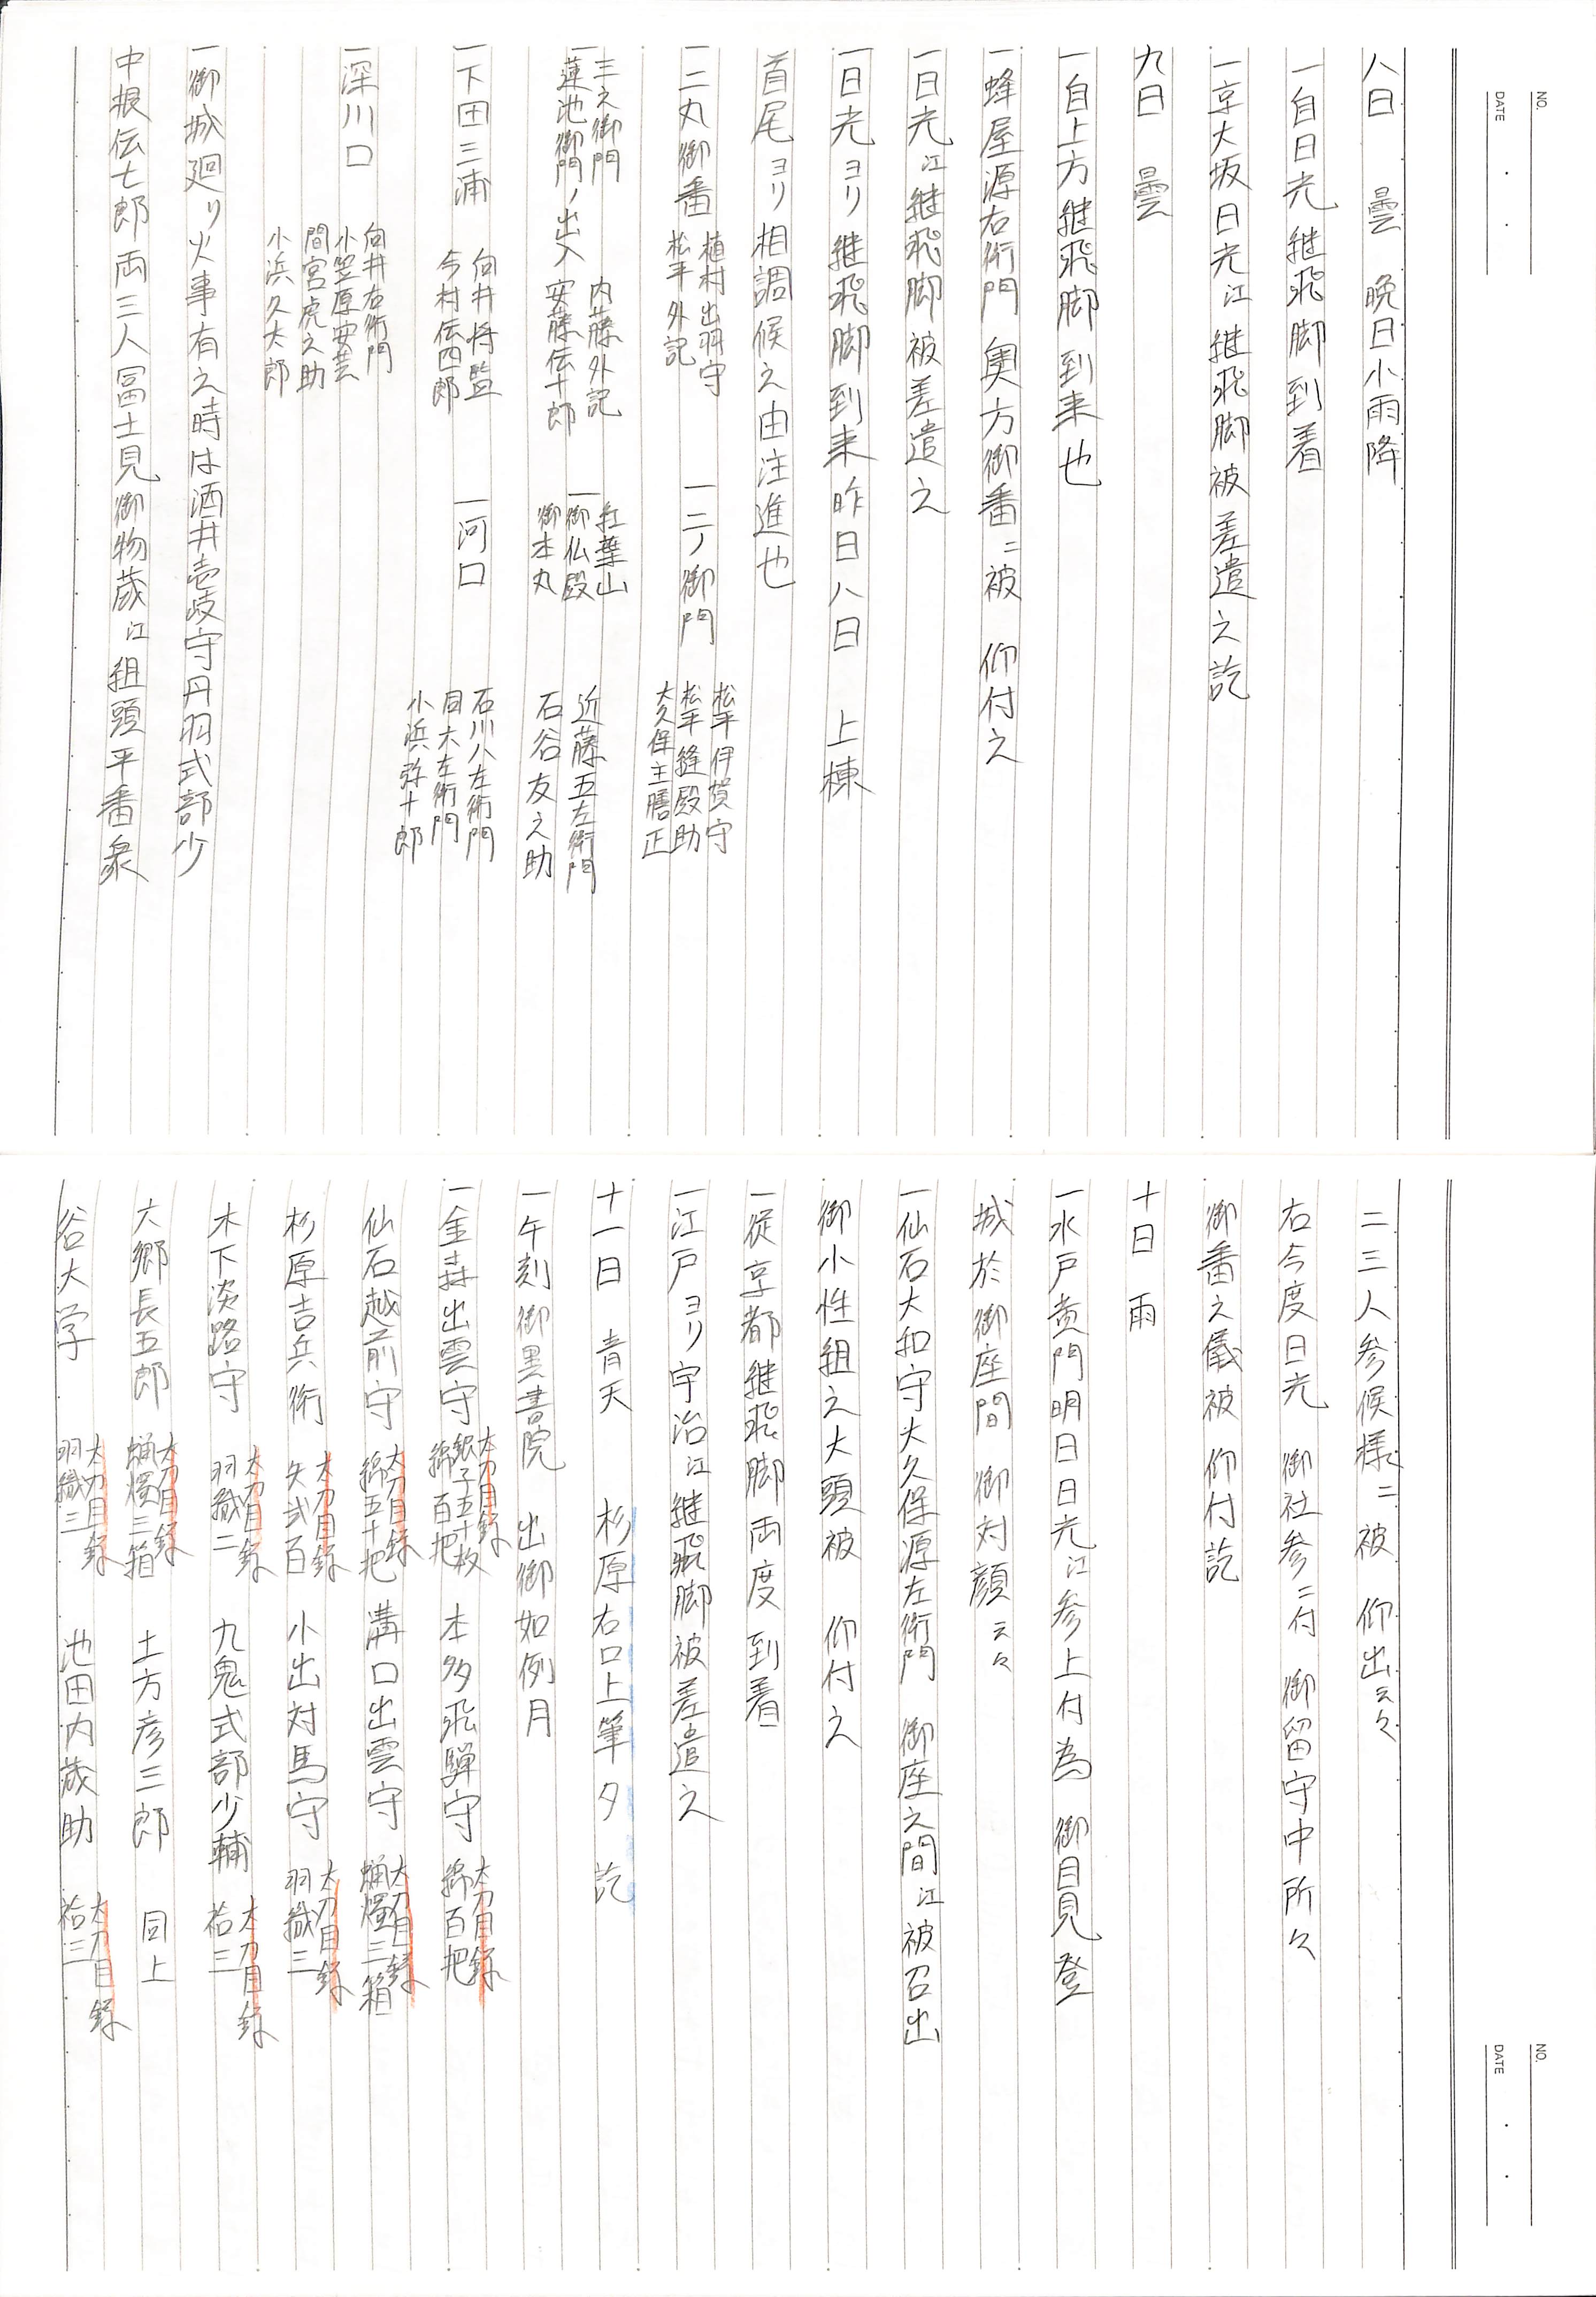 NO.
DATE
八日　曇　晩日小雨降
一自日光継飛脚到着
一京大坂日光江継飛脚被差遣之訖
九日　曇
一自上方継飛脚到来也
一蜂屋源右衛門　奥方御番ニ被　仰付之
一日光江継飛脚被差遣之
一日光ヨリ継飛脚到来昨日八日　上棟
首尾ヨリ相調候之由注進也
一二丸御番　植村出羽守
松平外記
一二ノ御門　松平伊賀守
松平縫殿助
大久保主膳正
三之御門
一蓮池御門ノ出入　内藤外記
安藤伝十郎
紅葉山
一御仏殿
御本丸
近藤五左衛門
石谷友之助
一下田三浦　向井将監
今村伝四郎
一河口　石川八左衛門
同大左衛門
小浜弥十郎
一深川口　向井右衛門
小笠原安芸
間宮虎之助
小浜久太郎
一御城廻り火事有之時は酒井壱岐守丹羽式部少
中根伝七郎両三人冨士見御物蔵江組頭平番衆
NO.
DATE
二三人参候様ニ被　仰出云々
右今度日光　御社参ニ付　御留守中所々
御番之儀被　仰付訖
十日　雨
一水戸黄門明日日光江参上付為　御目見登
城於御座間　御対顔云々
一仙石大和守大久保源左衛門　御座之間江被召出
御小性組之大頭被　仰付之
一従京都継飛脚両度到着
一江戸ヨリ宇治江継飛脚被差遣之
十一日　青天　杉原右口上筆夕　訖
一午刻御黒書院　出御如例月
一金森出雲守　太刀目録
銀子五十枚
綿百把
本多飛騨守　太刀目録
綿百把
仙石越前守　太刀目録
綿五十把
溝口出雲守　太刀目録
蝋燭三箱
杉原吉兵衛　太刀目録
矢弐百
小出対馬守　太刀目録
羽織三
木下淡路守　太刀目録
羽織二
九鬼式部少輔　太刀目録
袷三
大郷長五郎　太刀目録
蝋燭三箱
土方彦三郎　同上
谷大学　太刀目録
羽織三
池田内蔵助　太刀目録
袷三